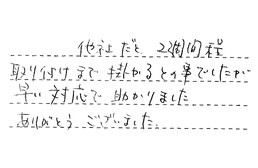 他社だと 2週間程
取り付けまで掛かるとの事でしたが
早い対応で助かりました
ありがとうございました。